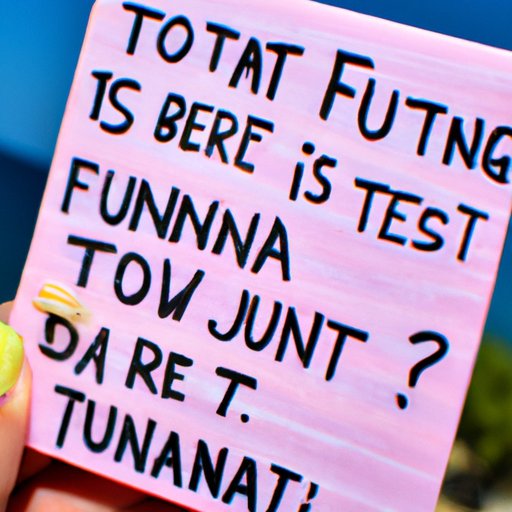 TOTAT FUTNG
TS BERE iS TEST
FUNNNA
TOW JUNT ?
DARE T.
TUNANATi